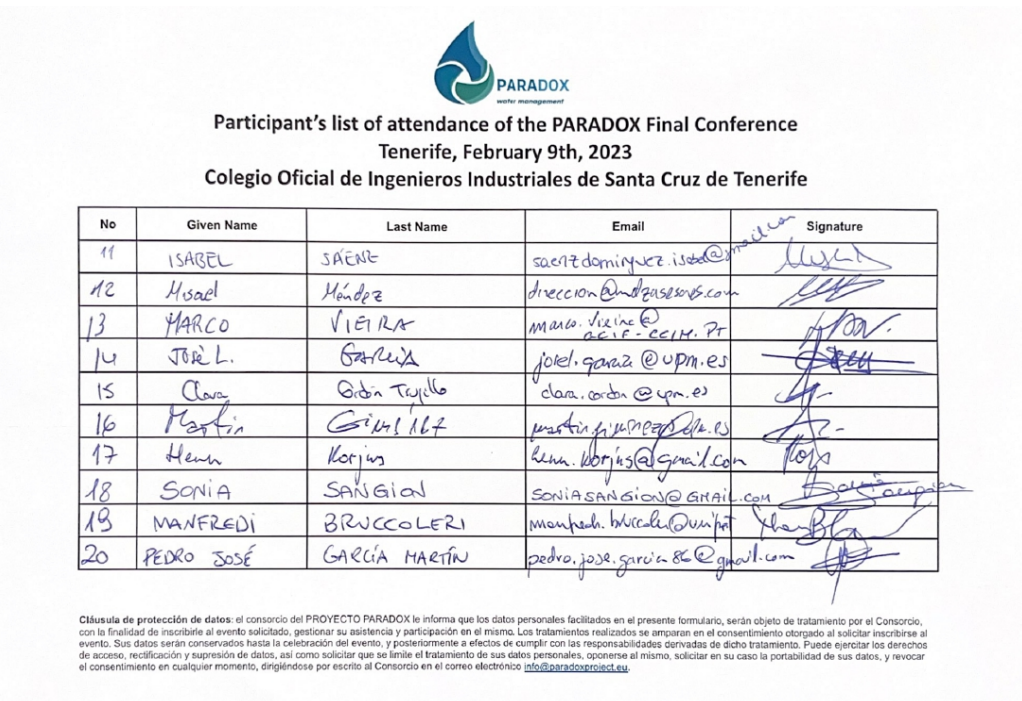 PARADOX
water management
Participant's list of attendance of the PARADOX Final Conference
Tenerife, February 9th, 2023
Colegio Oficial de Ingenieros Industriales de Santa Cruz de Tenerife
No Given Name Last Name Email Signature
11 ISABEL SÁENZ saenzdominguez.isabel@gmail.com
12 Misael Méndez direccion@mdzasesores.com
13 MARCO VIEIRA marco.vieira@
ACIF-CCIM.PT
14 JOSÈ L. GARCIA
15 Clara Cordón Trujillo clara.cordon@upm.es
16 Martin
17 Henn Korjus henn.korjus@gmail.com
18 SONIA SANGION SONIASANGION@GMAIL.COM
19 MANFREDI BRUCCOLERI
20 PEDRO JOSÉ GARCÍA MARTÍN pedro.jose.garcia86@gmail.com
Cláusula de protección de datos: el consorcio del PROYECTO PARADOX le informa que los datos personales facilitados en el presente formulario, serán objeto de tratamiento por el Consorcio,
con la finalidad de inscribirle al evento solicitado, gestionar su asistencia y participación en el mismo. Los tratamientos realizados se amparan en el consentimiento otorgado al solicitar inscribirse al
evento. Sus datos serán conservados hasta la celebración del evento, y posteriormente a efectos de cumplir con las responsabilidades derivadas de dicho tratamiento. Puede ejercitar los derechos
de acceso, rectificación y supresión de datos, así como solicitar que se limite el tratamiento de sus datos personales, oponerse al mismo, solicitar en su caso la portabilidad de sus datos, y revocar
el consentimiento en cualquier momento, dirigiéndose por escrito al Consorcio en el correo electrónico info@paradoxproject.eu.